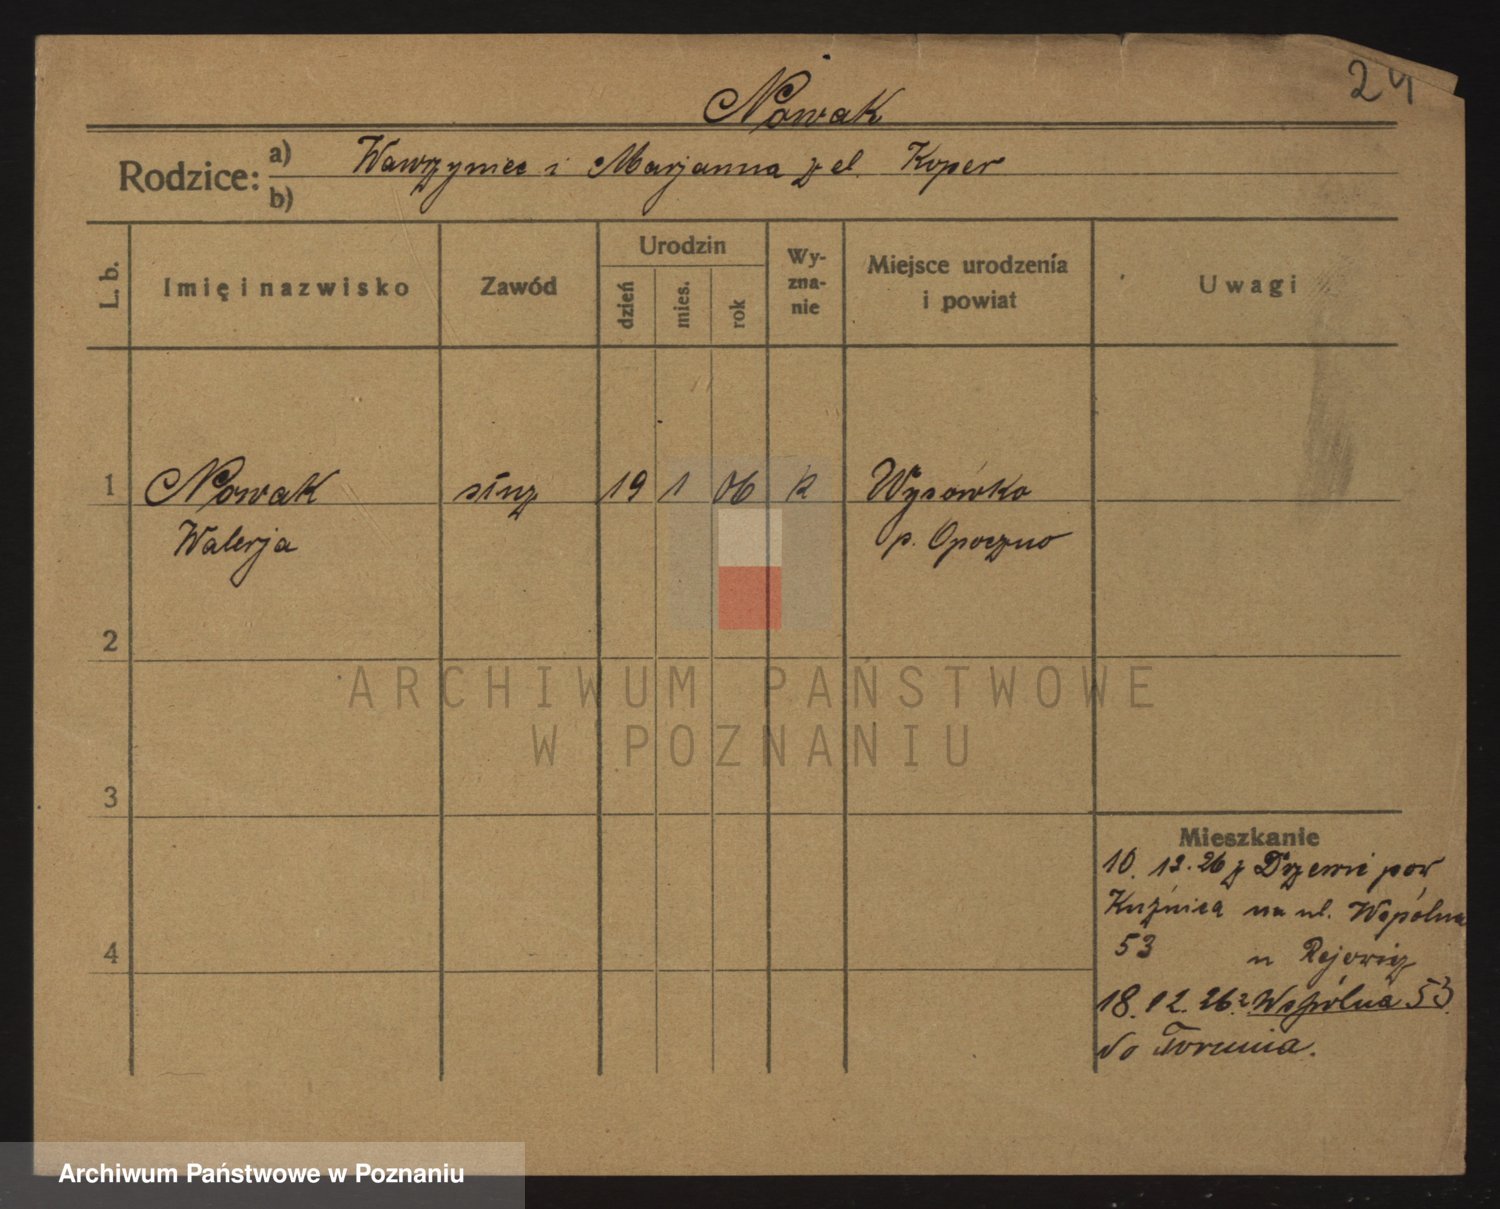 24
Nowak
Rodzice: a) Wawrzyniec i Marjanna z d. Koper
b)
L. b. Imię i nazwisko Zawód Urodzin dzień mies. rok Wy-zna-nie Miejsce urodzenia i powiat Uwagi
1 Nowak służ 19 1 06 k Wysówka
Walerja p. Opoczno
2
3
4
Mieszkanie
10. 12. 26 z Drzewic pow
Kuźnica na ul. Wspólna
53 u Rejowicz
18. 12. 26 z Wspólna 53
do Torunia.
ARCHIWUM PAŃSTWOWE
W POZNANIU
Archiwum Państwowe w Poznaniu